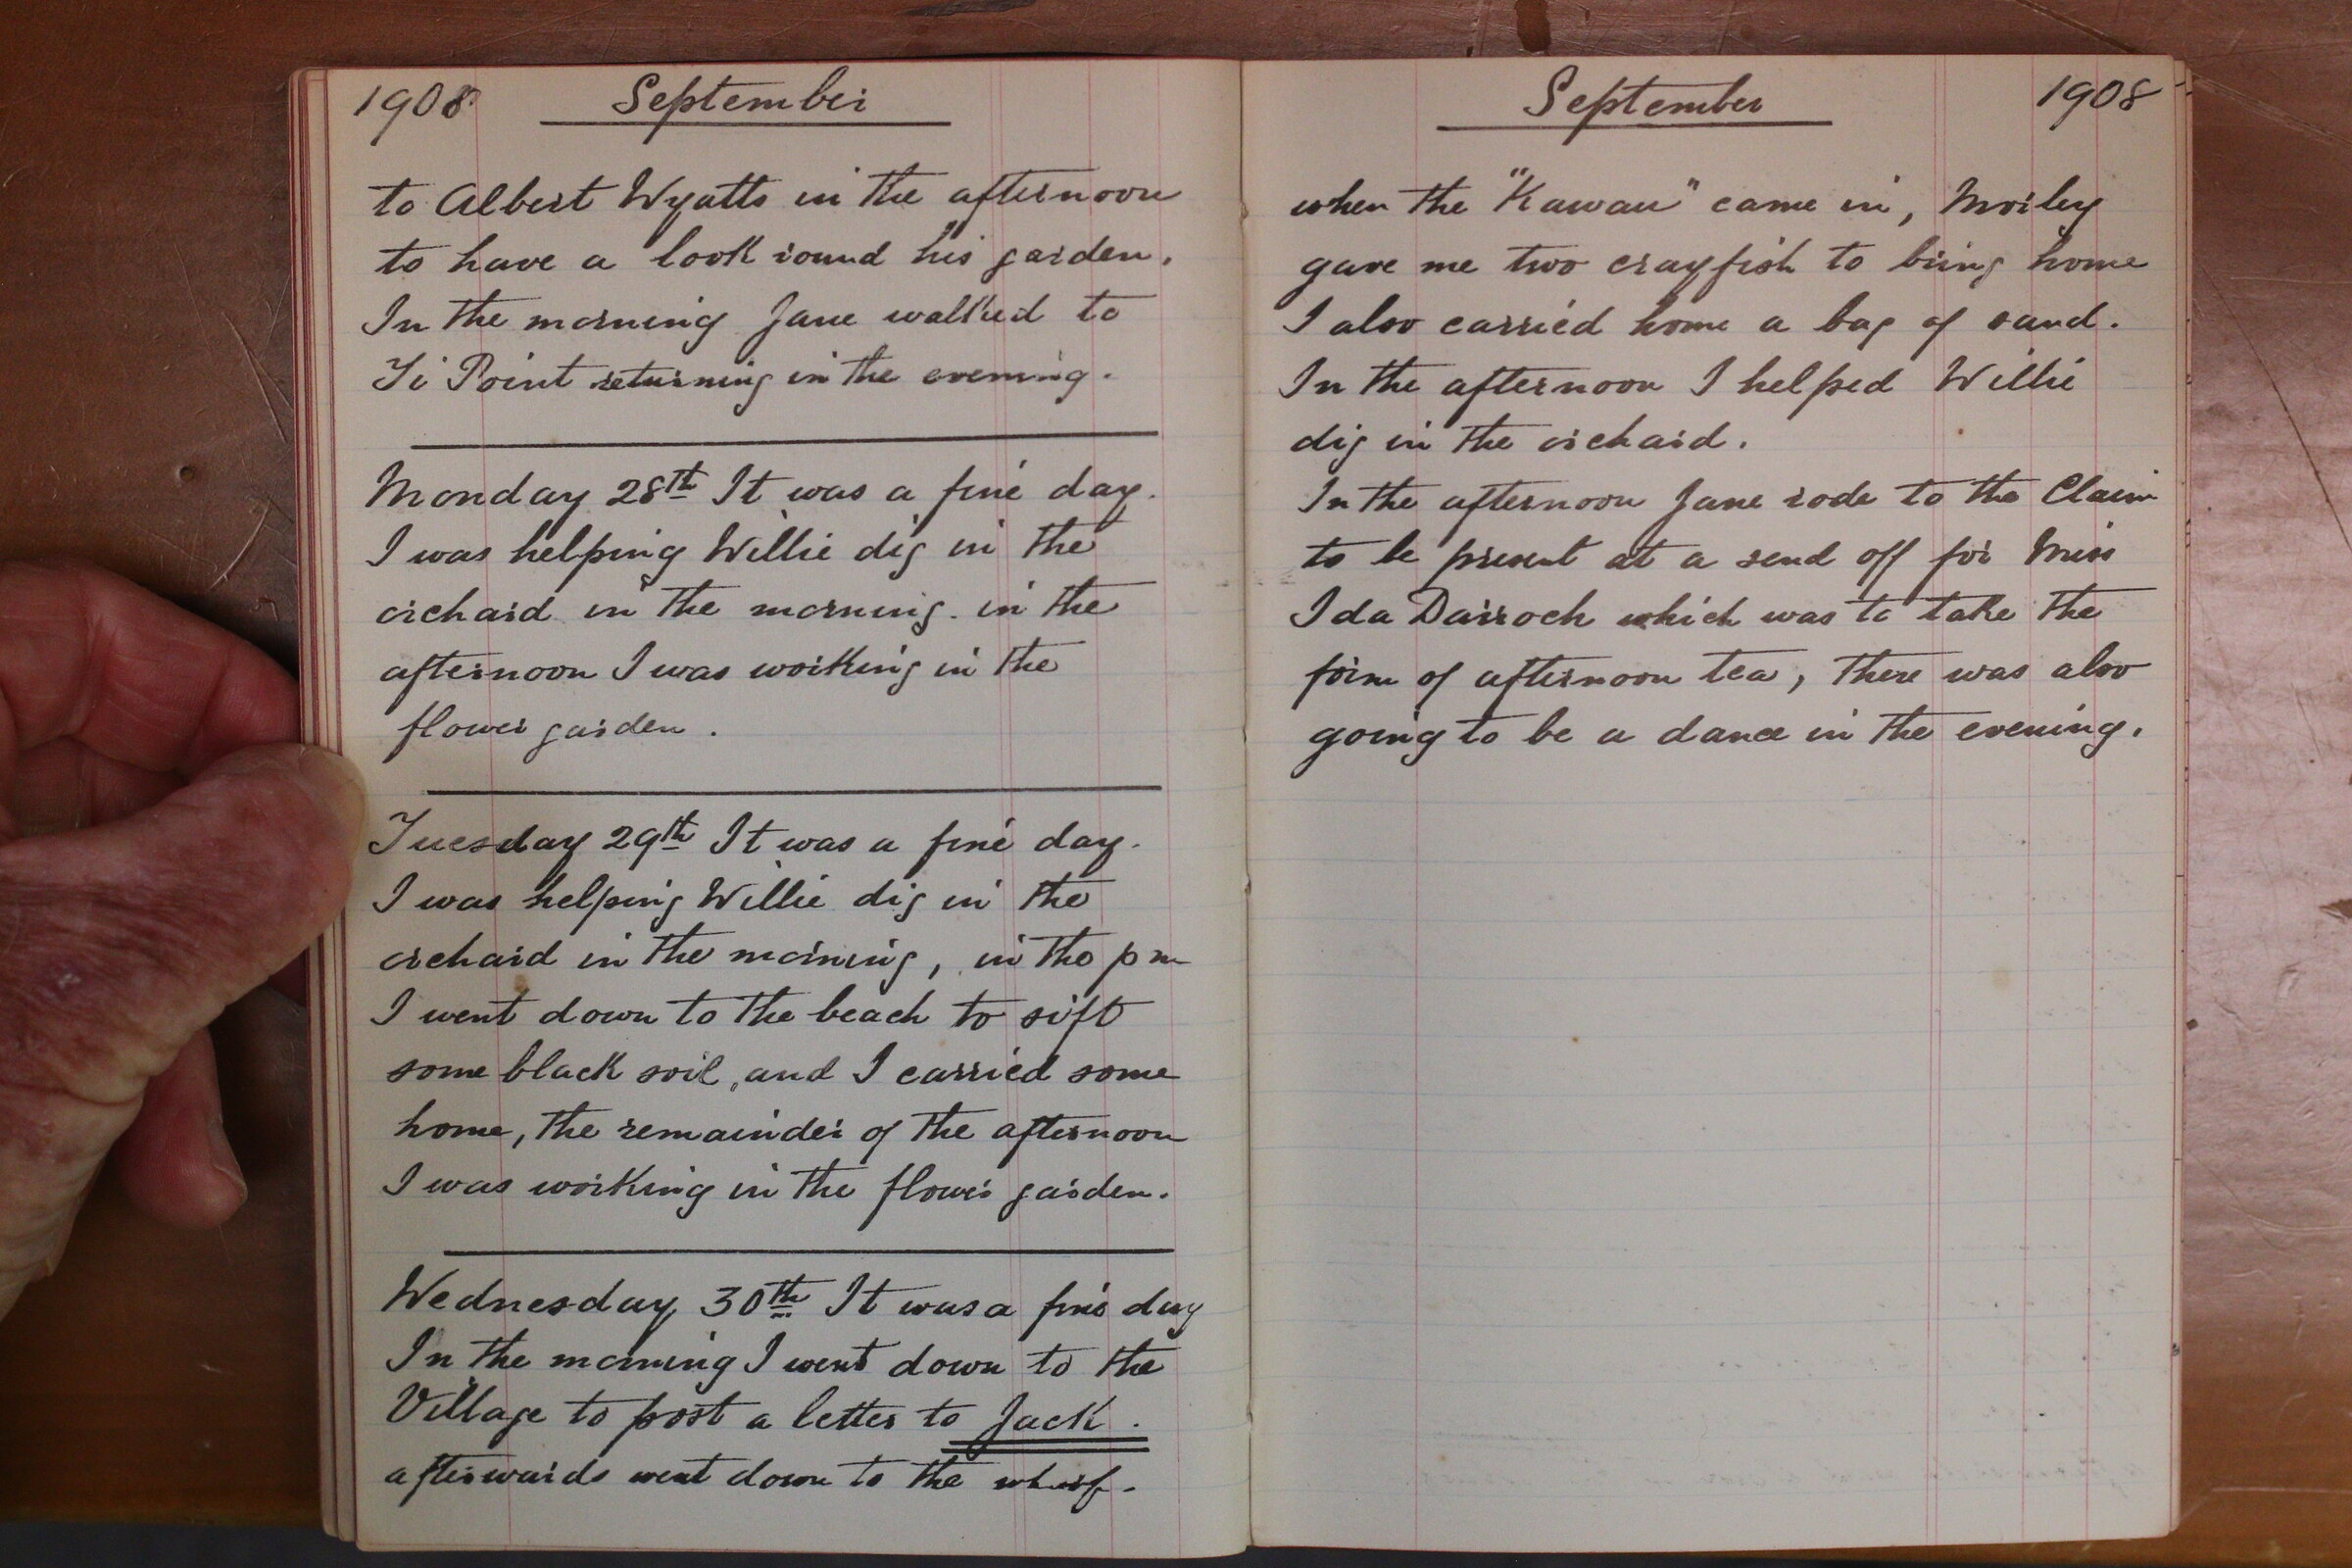 1908 September
to Albert Wyatts in the afternoon
to have a look round his garden.
In the morning Jane walked to
Ti Point returning in the evening.
Monday 28th It was a fine day.
I was helping Willie dig in the
orchard in the morning. in the
afternoon I was working in the
flower garden.
Tuesday 29th It was a fine day.
I was helping Willie dig in the
orchard in the morning, in the pm
I went down to the beach to sift
some black soil, and I carried some
home, the remainder of the afternoon
I was working in the flower garden.
Wednesday 30th It was a fine day
In the morning I went down to the
Village to post a letter to Jack.
afterwards went down to the wharf.
September 1908
when the "Kawau" came in, Morley
gave me two crayfish to bring home
I also carried home a bag of sand.
In the afternoon I helped Willie
dig in the orchard.
In the afternoon Jane rode to the Claim
to be present at a send off for Miss
Ida Darroch which was to take the
form of afternoon tea, there was also
going to be a dance in the evening.